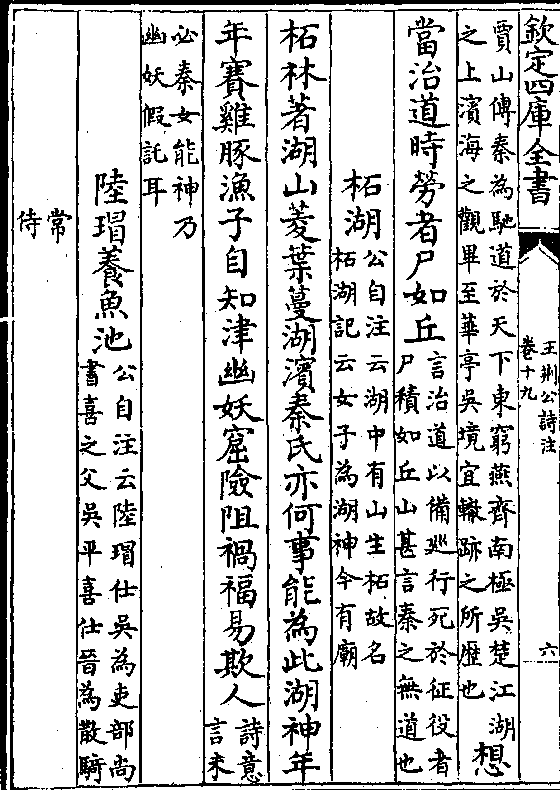 欽定四庫全書
王荆公詩注
卷十九
六
賈山傳秦為馳道於天下東窮燕齊南極吳楚江湖
之上濱海之觀畢至華亭吳境宜轍跡之所歴也
想
當治道時勞者尸如丘
言治道以備廵行死於征役者
尸積如丘山甚言秦之無道也
柘湖
公自注云湖中有山生柘故名
柘湖記云女子為湖神今有廟
柘林著湖山菱葉蔓湖濱秦氏亦何事能為此湖神年
年賽雞豚漁子自知津幽妖窟險阻禍福易欺人
詩意
言未
必秦女能神乃
幽妖假託耳
陸瑁養魚池
公自注云陸瑁仕吳為吏部尚
書喜之父吳平喜仕晉為散騎
常
侍